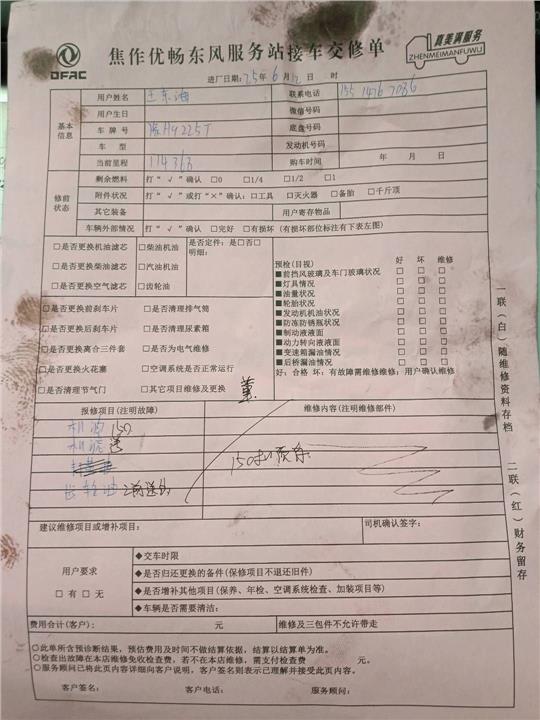 DFAC
焦作优畅东风服务站接车交修单
真美满服务
ZHENMEIMANFUWU
进厂日期：25年6月 日 时
基本信息
用户姓名 王东海 联系电话
用户生日 微信号码
车牌号 底盘号码
车型 发动机号码
当前里程 114363 购车时间 年 月 日
修前状态
剩余燃料 打“√”确认 □0 □1/4 □1/2 □1
附件状况 打“√”或打“×”确认：□工具 □灭火器 □备胎 □千斤顶
其它装备 用户寄存物品
车辆外部情况 打“√”确认 □完好 □有损坏（有损坏部位标注有下表左图）
□是否更换机油滤芯 □柴油机油 是否定件：是□否□
□是否更换柴油滤芯 □汽油机油 明细：
□是否更换空气滤芯 □齿轮油
□是否更换前刹车片 □是否清理排气筒
□是否更换后刹车片 □是否清理尿素箱
□是否更换离合三件套 □是否为电气维修
□是否更换火花塞 □空调系统是否正常运行
□是否清理节气门 □其它项目维修及更换
预检(目视) 好 坏 维修
■前挡风玻璃及车门玻璃状况 □ □ □
■灯具情况 □ □ □
■油量状况 □ □ □
■轮胎状况 □ □ □
■发动机机油状况 □ □ □
■防冻防锈瓶状况 □ □ □
■制动液液面 □ □ □
■动力转向液液面 □ □ □
■变速箱漏油情况 □ □ □
■后桥漏油情况 □ □ □
好：合格 坏：有故障需维修维修：用户确认维修
报修项目(注明故障) 维修内容(注明维修部件)
机油 150
机滤 送
建议维修项目或增补项目： 司机确认签字：
用户要求
□有 □无
◆交车时限
◆是否归还更换的备件(保修项目不退还旧件)
◆是否增补其他项目(保养、年检、空调系统检查、加装项目等)
◆车辆是否需要清洁：
费用合计(客户)： 元 维修及三包件不允许带走
○此单所含预诊断结果，预估费用及时间不做结算依据，结算以结算单为准。
○检查出故障在本店维修免收检查费，若不在本店维修，需支付检查费 元。
○服务顾问已将此页内容详细向客户说明，客户签名则表示已理解并接受此页内容。
客户签名： 客户电话： 服务顾问：
一联（白）随维修资料存档
二联（红）财务留存